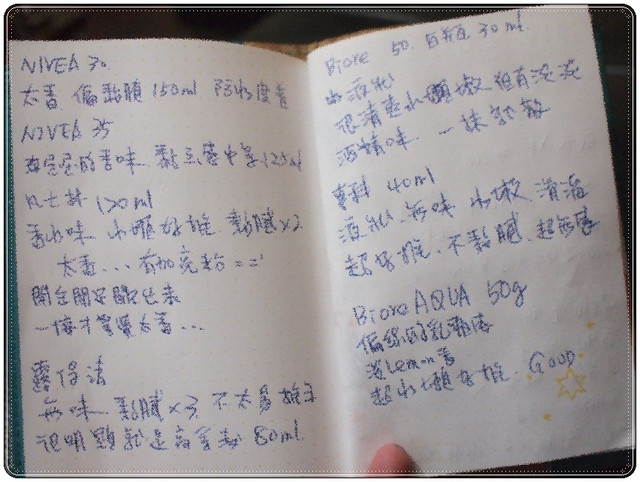 NIVEA 30
太香 偏黏膩 150ml 防水度青
NIVEA 35
的香味 黏 中等 125ml
凡士林 120ml
香水味 水 好推 黏膩x2
太香... 有加亮粉 =="
聞
一擦才驚覺太香...
露得清
無味 黏膩x3 不太易推
很明顯就是高 80ml
Biore 50 白瓶 30ml
水液狀
很清爽水嫩 但有淡淡
酒精味 一抹就散
專科 40ml
液狀 無味 水嫩 滑溜
超好推 不黏膩 超無感
Biore AQUA 50g
偏綠的乳
淡Lemon香
超水 好推 GOOD